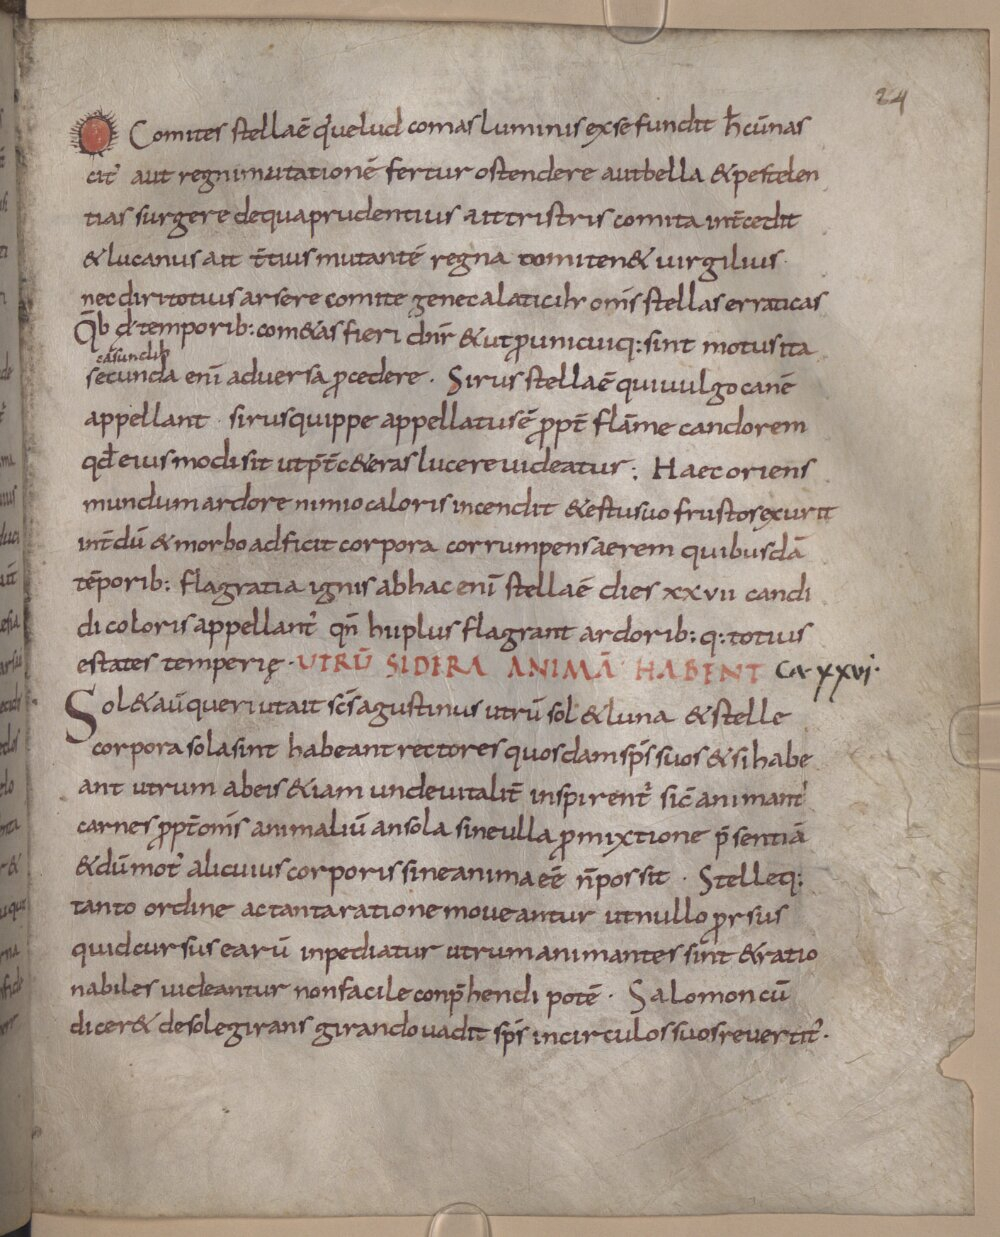 24
Comites stellaē q̇ uelud comas luminis ex se fundit h̄ cū nas
cit͛ aut regni mutationē fertur ostendere aut bella & pestelen
tias surgere de qua prudentius ait tristris comita int̄cedit
& lucanus ait t̄tius mutantē regna comiten & uirgilius·
nec diri totius arsere comite genec alatici hr̄ om̄s stellas erraticas
Q̄b d̄ temporib: com&as fieri dn̄r & ut ꝑ unicuiq: sint motus ita
casundib
secunda eni͞ aduersa ꝓcedere · Sirus stellaē qui uulgo canē
appellant · sirus quippe appellatus ē ꝓpt̄ flām̄e candorem
qd̄ eius modi sit ut p̄t̄ c&eras lucere uideatur; Haec oriens
mundum ardore nimio caloris incendit & estu suo frustos exurit
int̄dū & morbo adficit corpora corrumpens aerem quibusdā
tēporib: flagratia ignis ab hac eni͞ stellaē dies xxvii candi
di coloris appellant͛ qn̄ huplus flagrant ardorib: q: totius
estates temperię · UTRŪ SIDERA ANIMĀ HABENT CA xxvi·
Sol & aū queri ut ait sc̄s agustinus utrū sol & luna & stelle
corpora sola sint habeant rectores quosdam sp̄s suos & si habe
ant utrum ab eis &iam unde uitalit̄ inspirent͛ sic̄ animant͛
carnes ꝓpt̄ om̄s animaliū an sola sine ulla ꝑmixtione p̄sentiā
& dū mot͛ alicuius corporis sine anima eē n̄ possit · Stelleq:
tanto ordine ac tanta ratione moueantur ut nullo prorsus
quid cursus earū inpediatur utrum animantes sint & ratio
nabiles uideantur non facile conp̄hendi potē · Salomon cū
dicer& de sole girans girando uadit sp̄s in circulos suos reuertit͛·